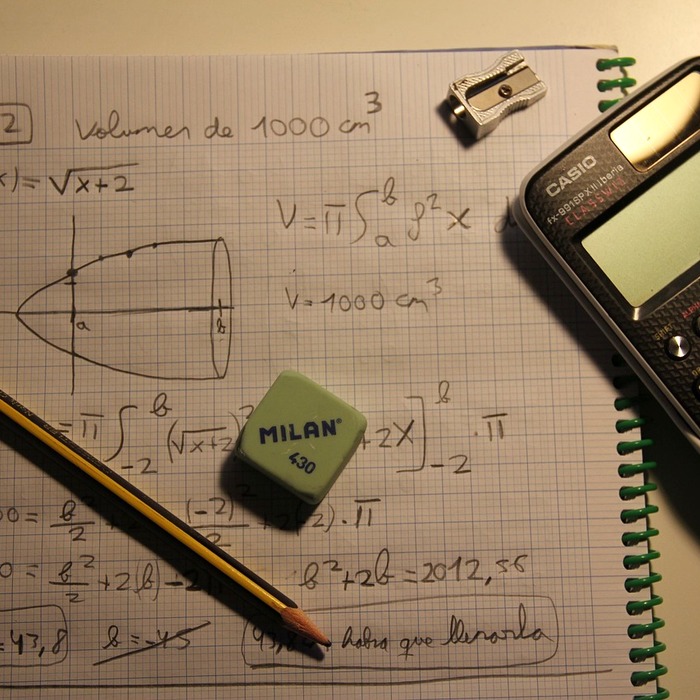 2 Volumen de 1000 cm³
x) = √x+2
V = π ∫ₐᵇ f² x d
V = 1000 cm³
a b
= π ∫₋₂ᵇ (√x+2)² + 2x]₋₂ᵇ · π
00 = b²/2 + 2 (-2)²/2 + 2(-2) · π
0 = b²/2 + 2(b) - 2 b² + 2b = 2012,56
= 43,8 b = -45 habra que llenarla
MILAN®
430
CASIO
fx-991SPXII Iberia
CLASSWIZ